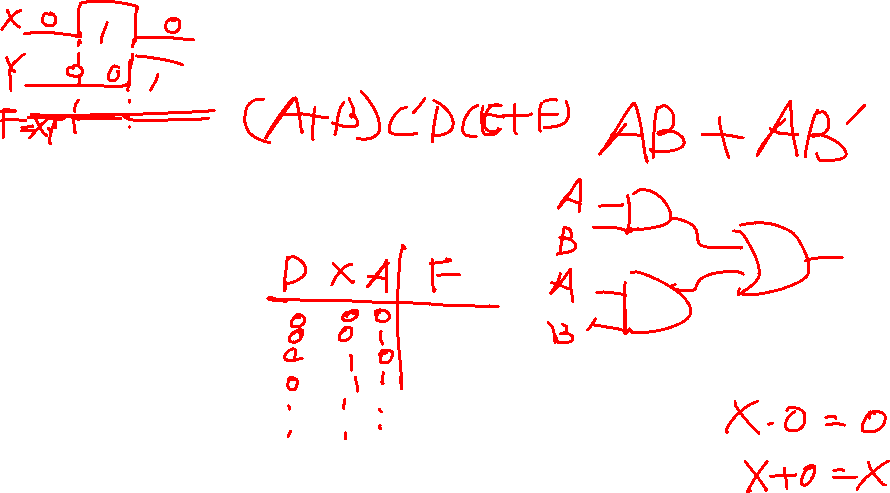 X 0 1 0
Y 0 0 1
F=XY
(A+B)C'D(E+F)
AB+AB'
A
B
A
B
D X A F
0 0 0
0 0 1
0 1 0
0 1 1
X·0=0
X+0=X